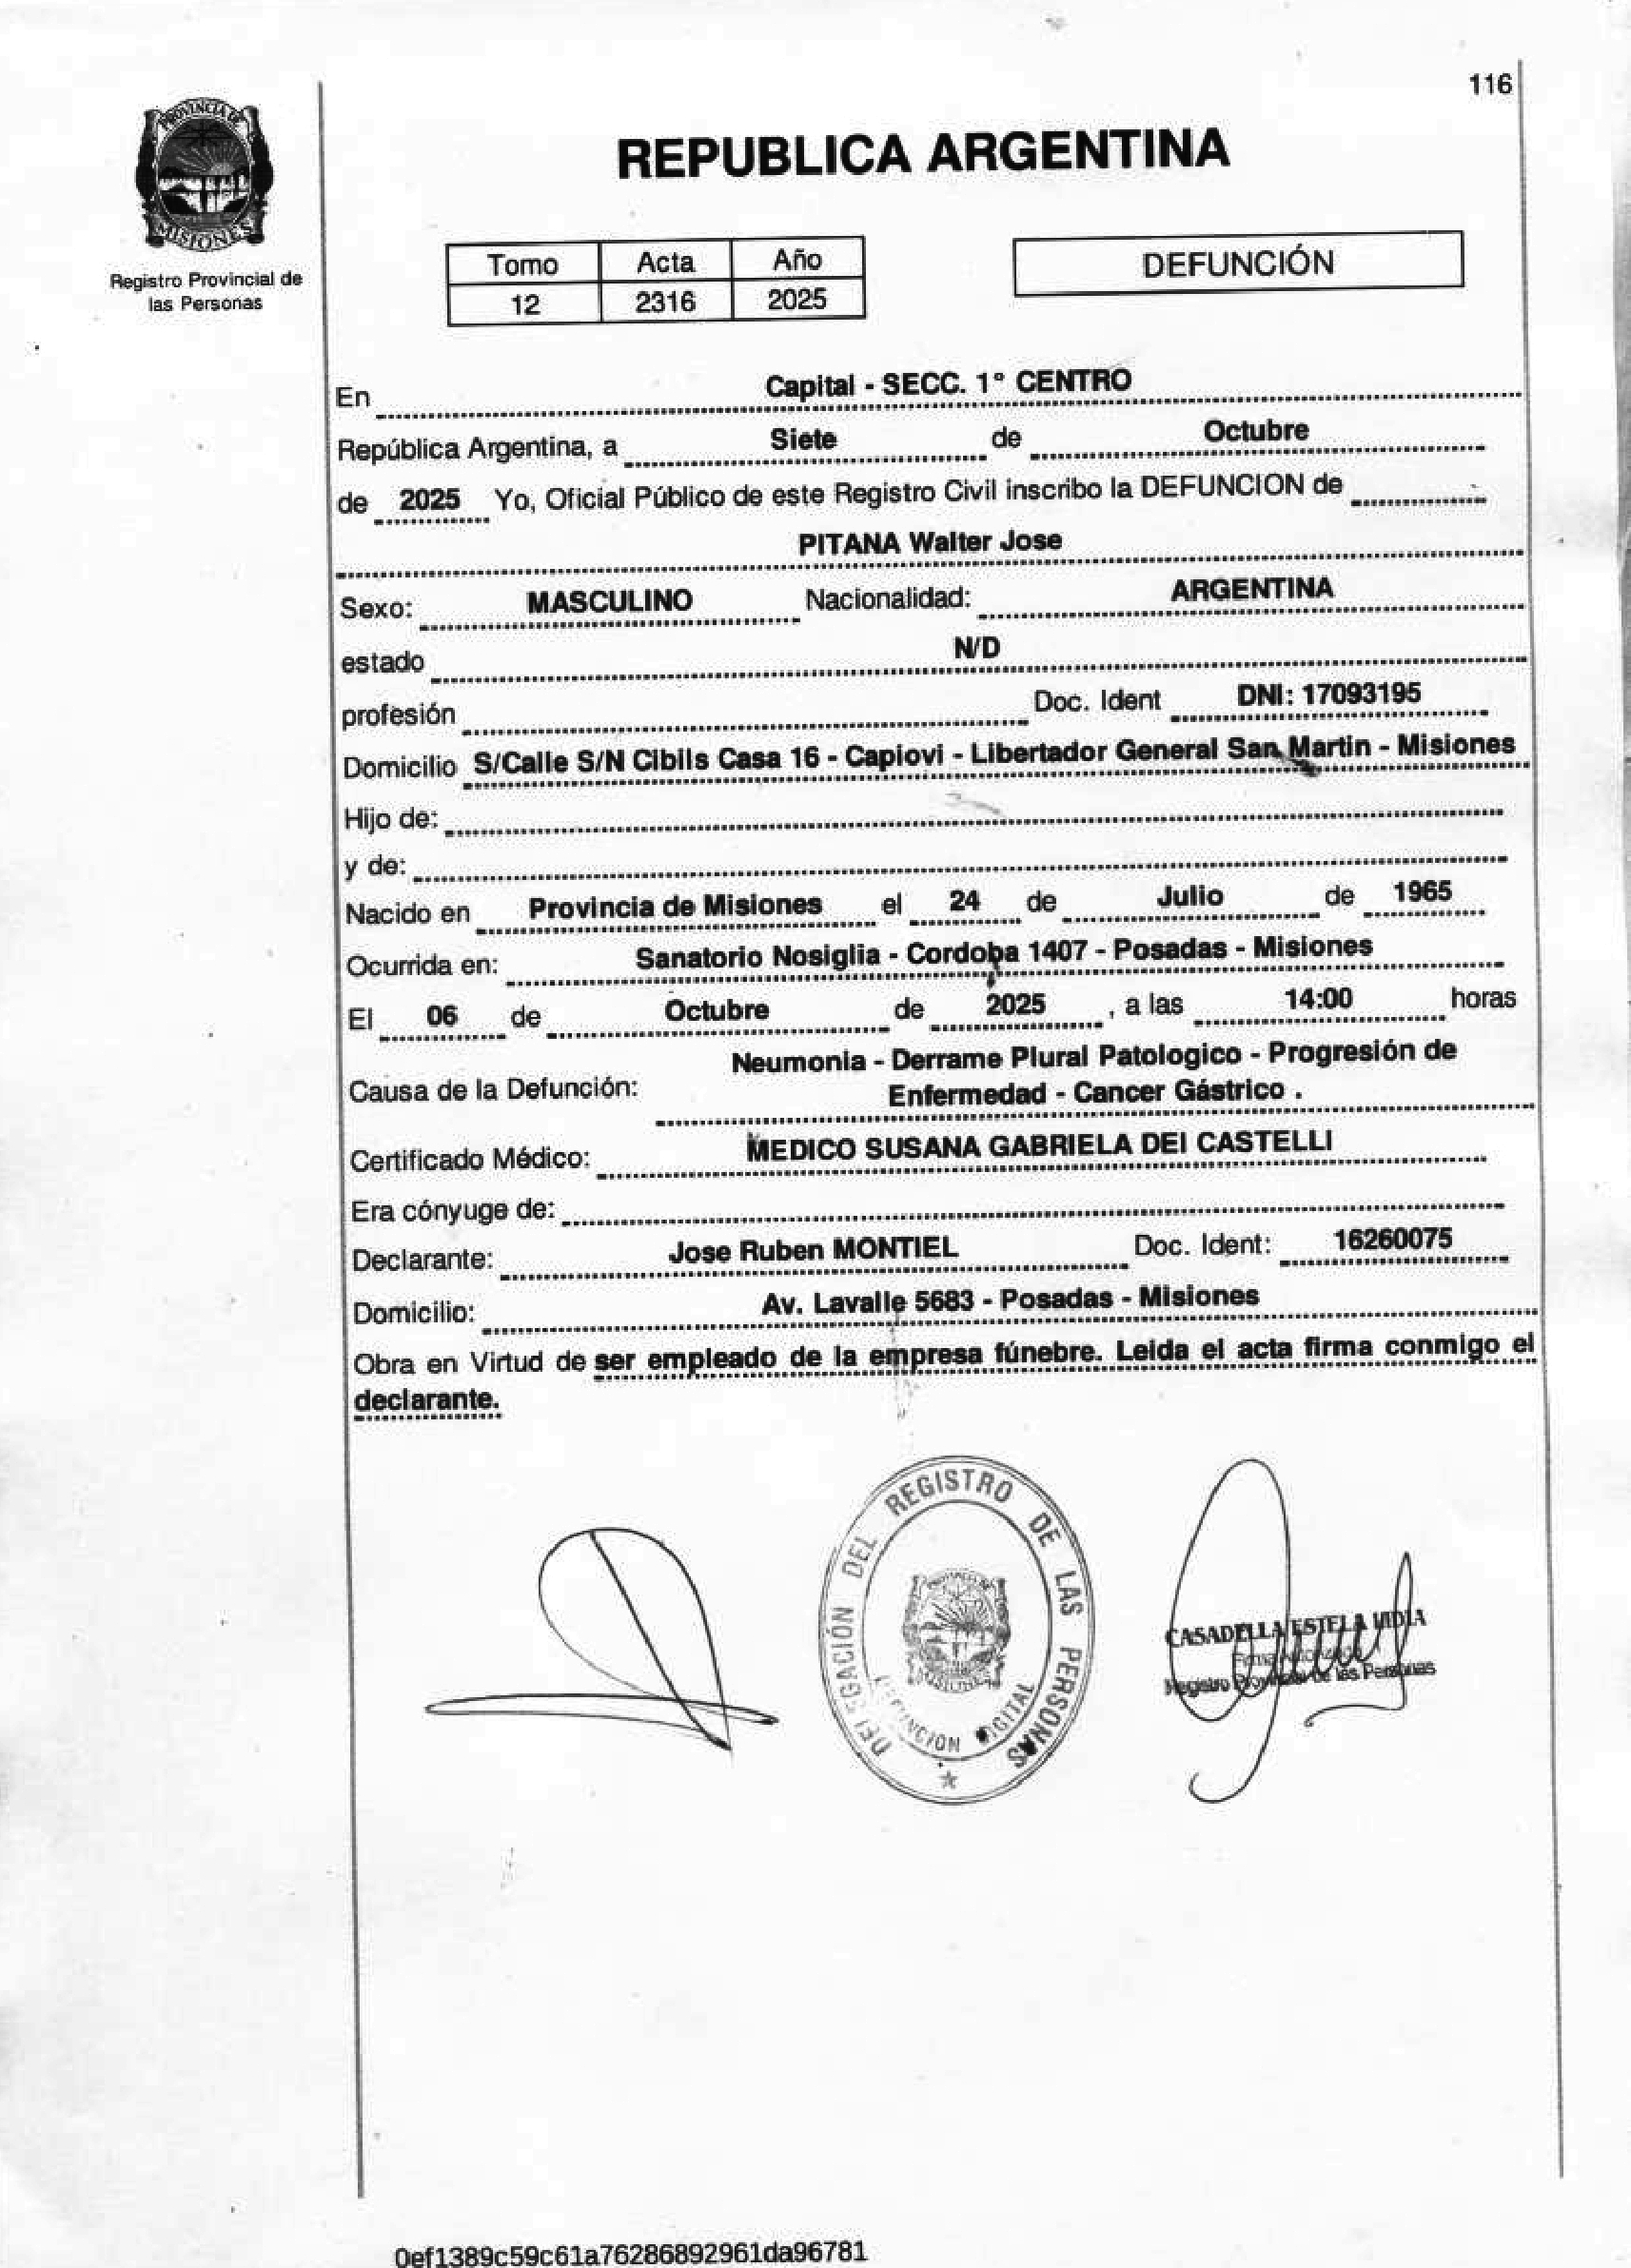 116
PROVINCIA DE
MISIONES
Registro Provincial de
las Personas
REPUBLICA ARGENTINA
Tomo Acta Año
12 2316 2025
DEFUNCIÓN
En Capital - SECC. 1° CENTRO
República Argentina, a Siete de Octubre
de 2025 Yo, Oficial Público de este Registro Civil inscribo la DEFUNCION de
PITANA Walter Jose
Sexo: MASCULINO Nacionalidad: ARGENTINA
estado N/D
profesión Doc. Ident DNI: 17093195
Domicilio S/Calle S/N Cibils Casa 16 - Capiovi - Libertador General San Martin - Misiones
Hijo de:
y de:
Nacido en Provincia de Misiones el 24 de Julio de 1965
Ocurrida en: Sanatorio Nosiglia - Cordoba 1407 - Posadas - Misiones
El 06 de Octubre de 2025 , a las 14:00 horas
Neumonia - Derrame Plural Patologico - Progresión de
Causa de la Defunción: Enfermedad - Cancer Gástrico .
Certificado Médico: MEDICO SUSANA GABRIELA DEI CASTELLI
Era cónyuge de:
Declarante: Jose Ruben MONTIEL Doc. Ident: 16260075
Domicilio: Av. Lavalle 5683 - Posadas - Misiones
Obra en Virtud de ser empleado de la empresa fúnebre. Leida el acta firma conmigo el
declarante.
DELEGACIÓN DEL REGISTRO DE LAS PERSONAS
DEFUNCION DIGITAL
CASADELLA ESTELA
Registro Provincial de las Personas
0ef1389c59c61a76286892961da96781